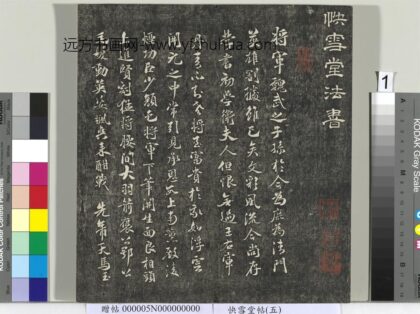 快雪堂法書
將軍魏武之子孫於今為庶為清門
英雄割據雖已矣文彩風流今尚存
學書初學衛夫人但恨無過王右軍
丹青不知老將至富貴於我如浮雲
開元之中常引見承恩數上南薰殿凌
煙功臣少顏色將軍下筆開生面良相頭
上進賢冠猛將腰間大羽箭褒公鄂公
毛髮動英姿颯爽來酣戰 先帝天馬玉
远方书画网 www.yfshuhua.com
1
KODAK Gray Scale
000005N000000000
快雪堂帖(五)